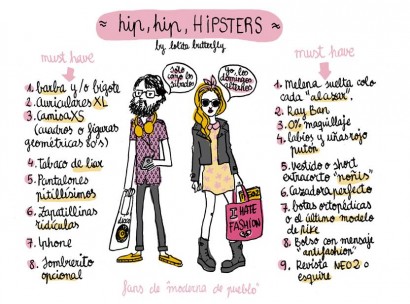 hip, hip, HIPSTERS
by lolita butterfly
must have
1. barba y/o bigote
2. Auriculares XL
3. Camisa XS
(cuadros o figuras
geométricas 80's)
4. Tabaco de liar
5. Pantalones
pitillísimos
6. Zapatillinas
ridículas
7. Iphone
8. Sombrerito
opcional
Solo
cazo los
sábados
Yo, los
domingos
alternos
I HATE
FASHION
must have
1. Melena suelta colo
cada "al azar".
2. Ray Ban
3. 0% maquillaje
4. labios y uñas rojo
putón
5. Vestido o short
extracorto "noñis"
6. Cazadora perfecto
7. botas ortopédicas
o el último modelo
de Nike
8. Bolso con mensaje
"antifashion"
9. Revista NEO2 o
esquire
fans de "moderna de pueblo"